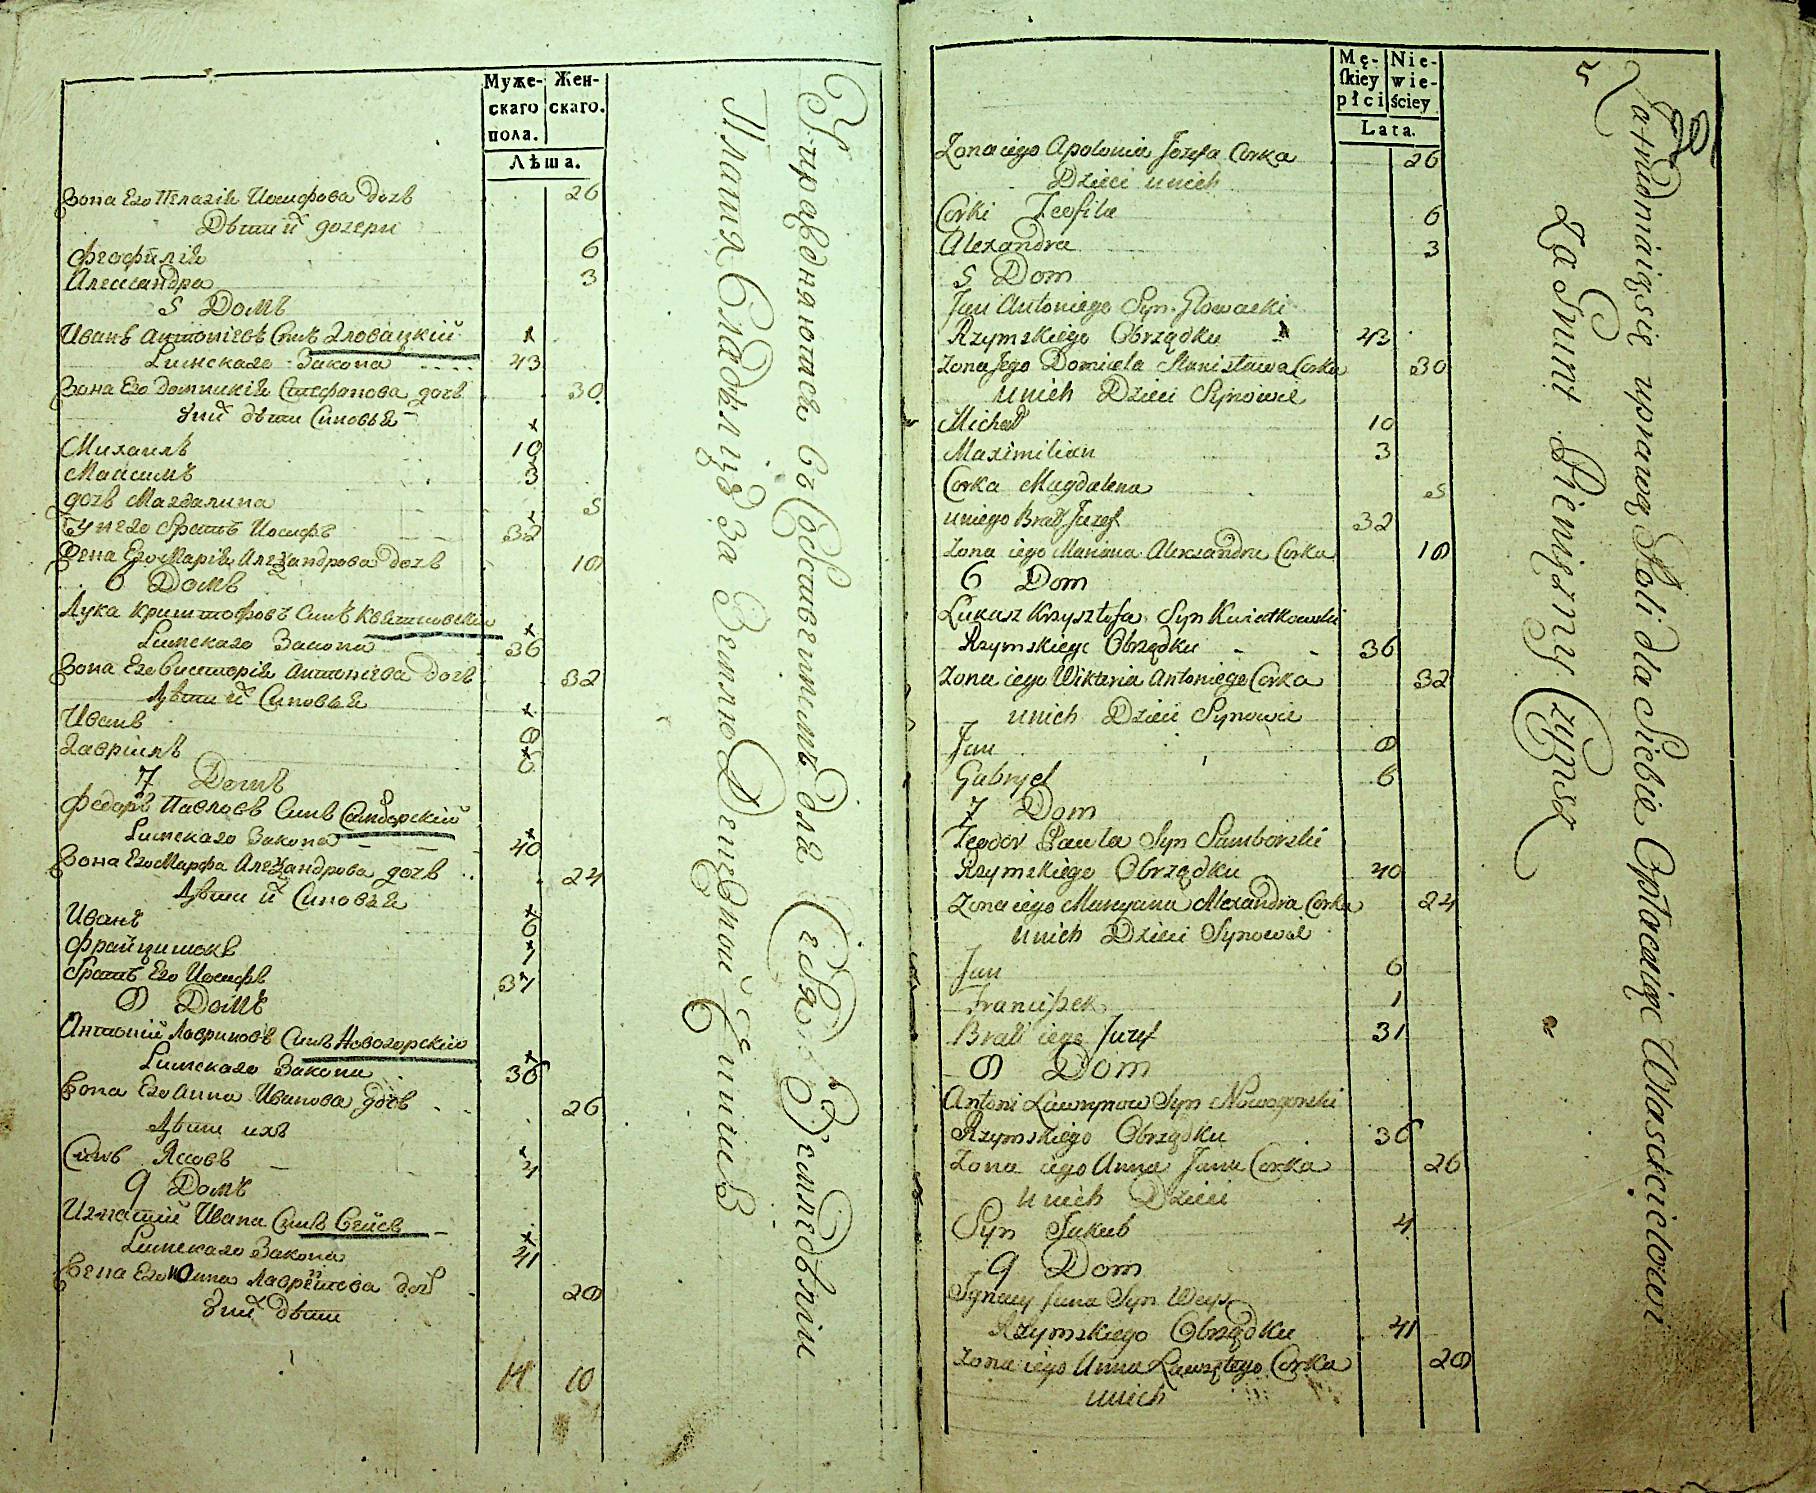 Муже-
скаго
пола.
Жен-
скаго.
Лѣта.
Зона Его Пелагія Иосифова дочь 26
Дѣти й дочери
Феофилія 6
Алессандра 3
5 Домъ
Иванъ Антоніевъ Синъ Зловацкій
Римскаго Закона 43
Зона Его Домникія Стефанова дочь 30
У ний дѣти Синовья
Михаилъ 10
Максимъ 3
дочь Магдалина 5
У него братъ Иосифъ 32
Зена Его Марія Александрова дочь 18
6 Домъ
Лука Криштофовъ Синъ Квятковскій
Римскаго Закона 36
Зона Его Викторія Антоніева дочь 32
Дѣти й Синовья
Иванъ 8
Гавріилъ 6
7 Домъ
Федоръ Павловъ Синъ Самборскій
Римскаго Закона 40
Зона Его Марфа Александрова дочь 24
Дѣти й Синовья
Иванъ 6
Францишокъ 1
братъ Его Иосифъ 31
8 Домъ
Антоній Лавриновъ Синъ Новогорскій
Римскаго Закона 36
Зона Его Анна Иванова дочь 26
Дѣти ихъ
Синъ Яковъ 4
9 Домъ
Игнатий Ивана Синъ Вейсъ
Римскаго Закона 41
Зена Его Анна дочь 28
У ний дѣти
10
Управдняются Въ Собственномъ для Себя Земледѣліи
Платя Владѣлцу За Землю Денежной Чиншъ
Mę-
ſkiey
płci
Nie-
wie-
ściey
Lata.
Zona iego Apolonia Jozefa Corka 26
Dzieci unich
Corki Teofila 6
Alexandra 3
5 Dom
Jan Antoniego Syn Słowacki
Rzymskiego Obrządku 43
Zona Jego Domicela Stanisława Corka 30
unich Dzieci Synowie
Michał 10
Maximilian 3
Corka Magdalena 5
uniego Brat Jozef 32
Zona iego Mariana Alexandra Corka 18
6 Dom
Łukasz Krzysztofa Syn Kwiatkowski
Rzymskiego Obrządku 36
Zona iego Wiktoria Antoniego Corka 32
unich Dzieci Synowie
Jan 8
Gabryel 6
7 Dom
Teodor Pawła Syn Samborski
Rzymskiego Obrządku 40
Zona iego Maryana Alexandra Corka 24
unich Dzieci Synowie
Jan 6
Franciszek 1
Brat iego Jozef 31
8 Dom
Antoni Ławrynow Syn Nowogorski
Rzymskiego Obrządku 36
Zona iego Anna Jana Corka 26
unich Dzieci
Syn Jakub 4
9 Dom
Ignacy Jana Syn Weys
Rzymskiego Obrządku 41
Zona iego Anna Corka 28
unich
Zatrudniaią się uprawą Roli dla Siebie Opłacaiąc Właścicielowi
Za Grunt Pieniężny Czynsz